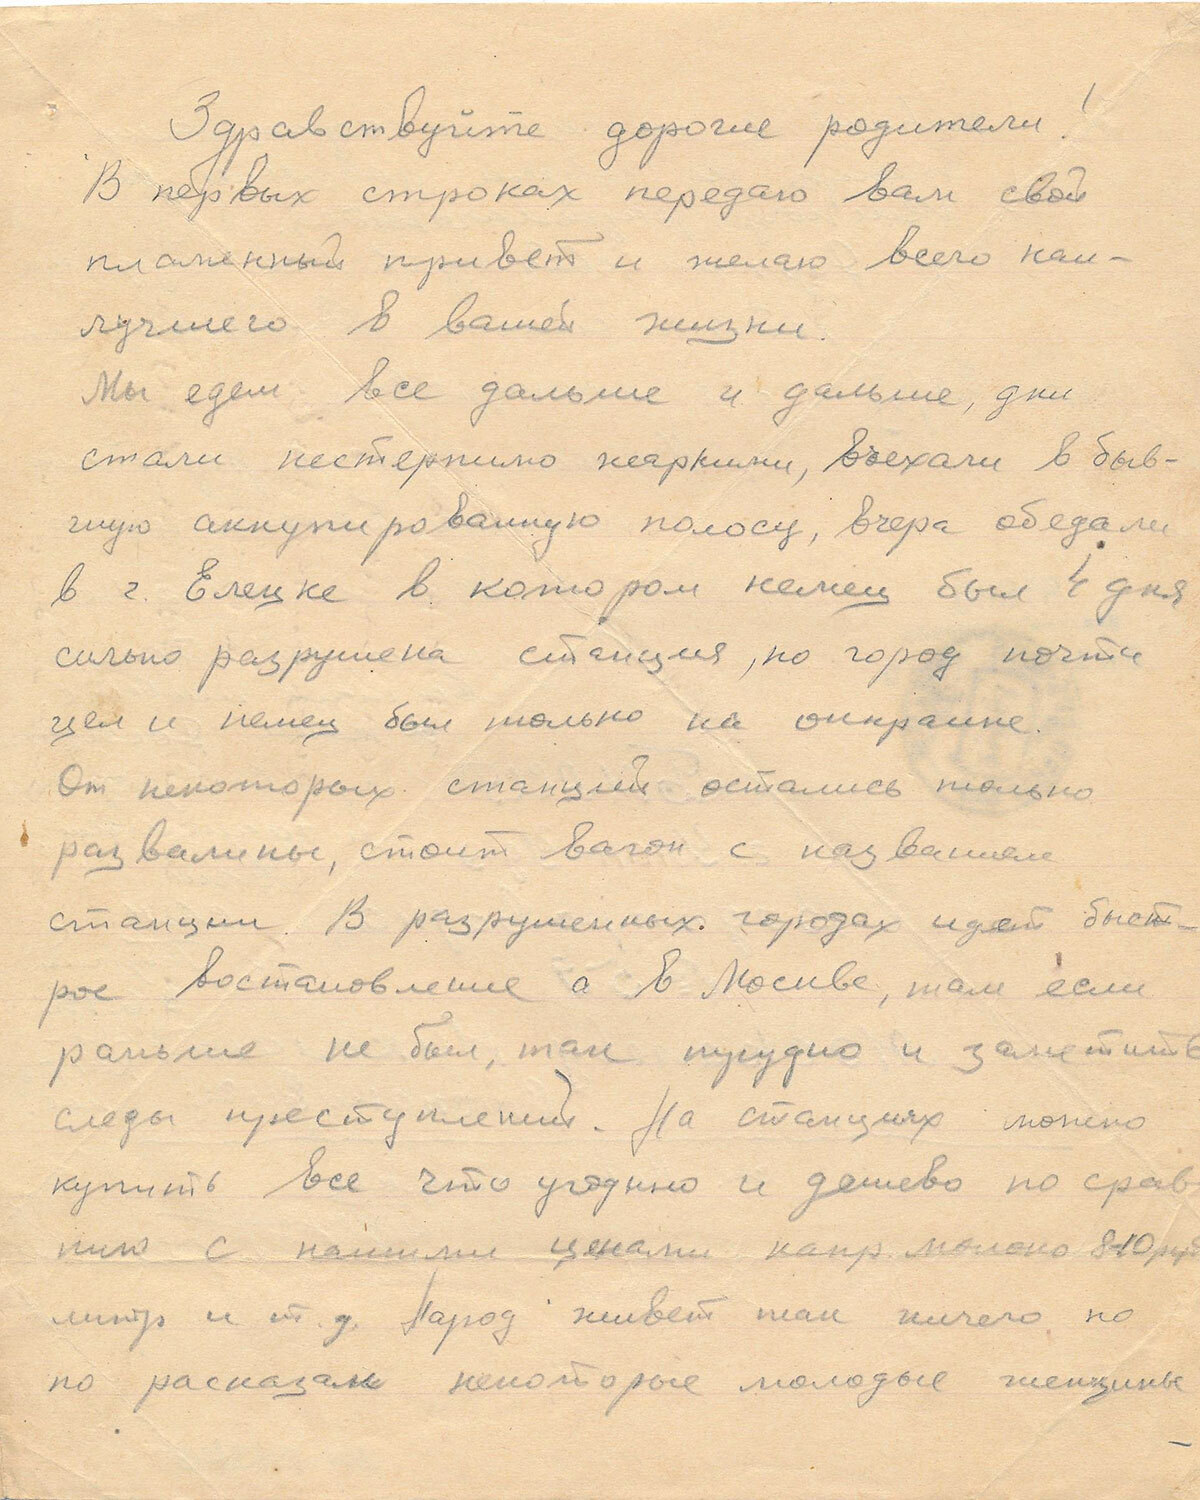 Здравствуйте дорогие родители!
В первых строках передаю вам свой
пламенный привет и желаю всего наи-
лучшего в вашей жизни.
Мы едем все дальше и дальше, дни
стали нестерпимо жаркими, въехали в быв-
шую аккупированную полосу, вчера обедали
в г. Елецке в котором немец был 4 дня
сильно разрушена станция, но город почти
цел и немец был только на онкраине.
От некоторых станций остались только
развалины, стоит вагон с названием
станции. В разрушенных городах идет быст-
рое востановление а в Москве, там если
раньше не был, так трудно и заметить
следы преступлений. На станциях можно
купить все что угодно и дешево по срав-
нию с нашими ценами напр молоко 8-10 руб
литр и т.д. Народ живет там ничего но
по расказам некоторые молодые женщины